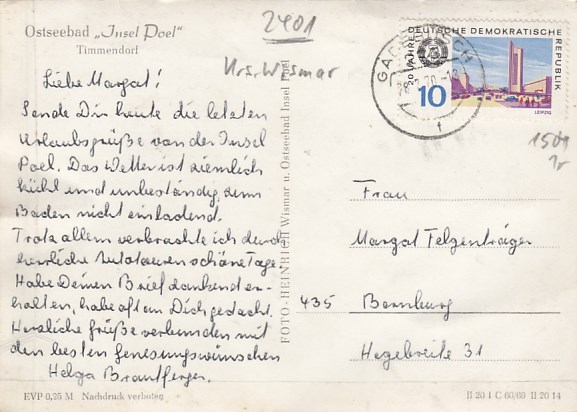 Ostseebad „Insel Poel“
Timmendorf
2401
Krs. Wismar
Liebe Margat!
Sende Dir heute die letzten
Urlaubsgrüße von der Insel
Poel. Das Wetter ist ziemlich
kühl und unbeständig, zum
Baden nicht einladend.
Trotz allem verbrachte ich durch
herrliche Autotouren schöne Tage.
Habe Deinen Brief dankend er-
halten, habe oft an Dich gedacht.
Herzliche Grüße verbunden mit
den besten Genesungswünschen
Helga
EVP 0,25 M Nachdruck verboten
FOTO-HEINRICH Wismar u. Ostseebad Insel Poel
20 JAHRE DEUTSCHE DEMOKRATISCHE REPUBLIK
10
LEIPZIG
Frau
Margat Felgenträger
435 Bernburg
Hegebreite 31
II 20 1 C 60/69 II 20 14